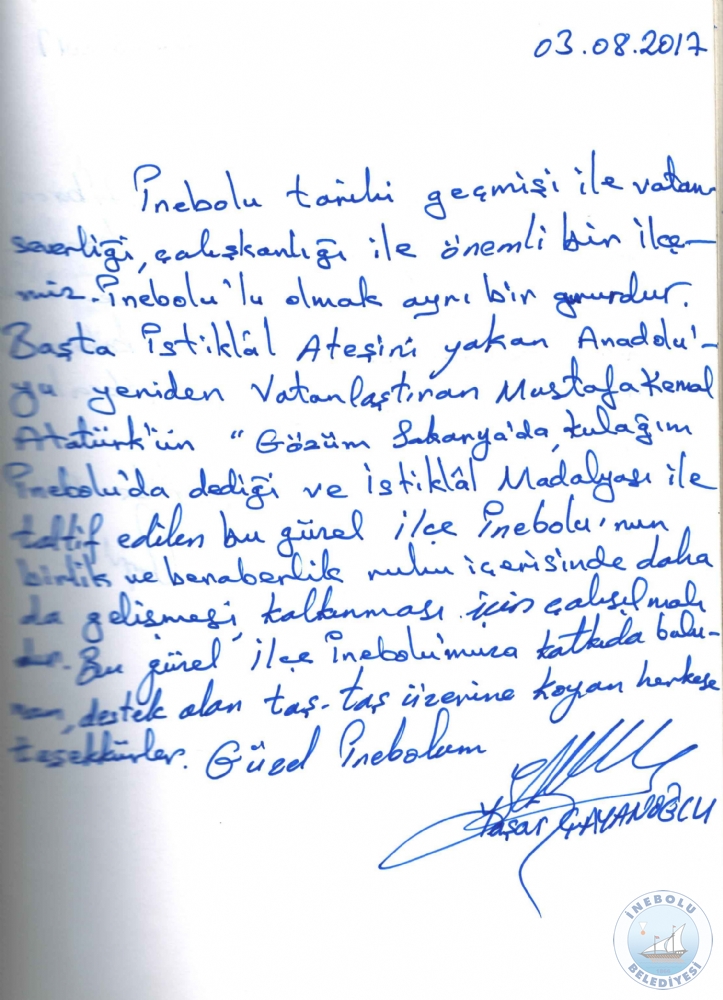 03.08.2017
İnebolu tarihi geçmişi ile vatan-
severliği, çalışkanlığı ile önemli bir ilçe-
miz. İnebolu'lu olmak ayrı bir gururdur.
Başta İstiklâl Ateşini yakan Anadolu'-
yu yeniden Vatanlaştıran Mustafa Kemal
Atatürk'ün "Gözüm Sakarya'da, kulağım
İnebolu'da dediği ve İstiklâl Madalyası ile
taltif edilen bu güzel ilçe İnebolu'nun
birlik ve beraberlik ruhu içerisinde daha
da gelişmesi, kalkınması için çalışılmalı
dır. Bu güzel ilçe İnebolu'muza katkıda bulu-
nan, destek olan taş-taş üzerine koyan herkese
teşekkürler. Güzel İnebolum
Yaşar ÇAYANOĞLU
İNEBOLU
BELEDİYESİ